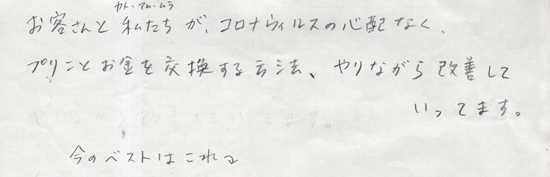 カト・アム・ムラ
お客さんと私たちが、コロナウィルスの心配なく、
プリンとお金を交換する方法、やりながら改善して
いってます。
今のベストはこれ